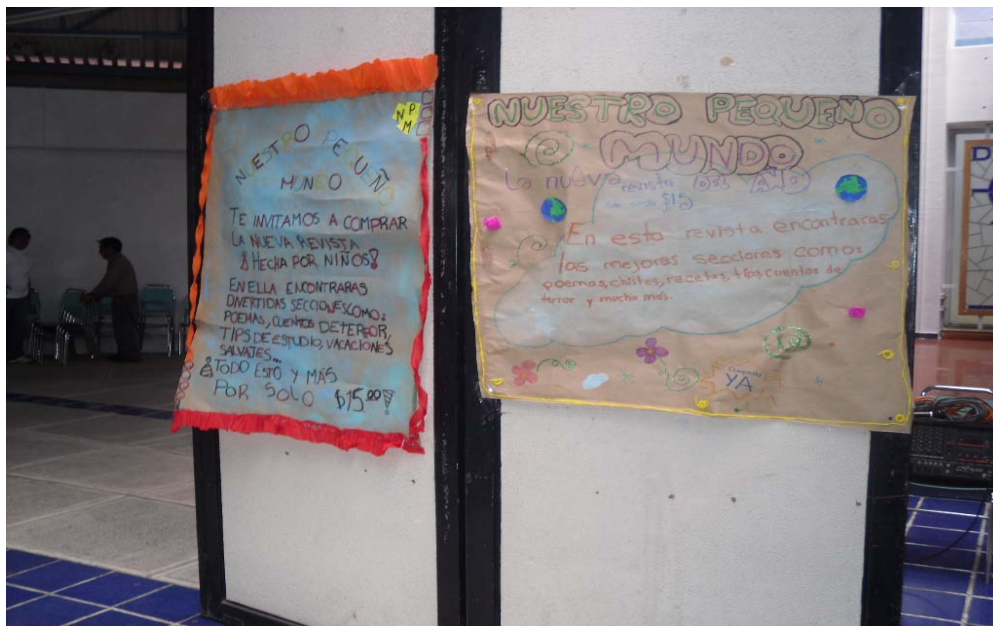 NPM
NUESTRO PEQUEÑO
MUNDO
TE INVITAMOS A COMPRAR
LA NUEVA REVISTA
¡HECHA POR NIÑOS!
EN ELLA ENCONTRARAS
DIVERTIDAS SECCIONES COMO:
POEMAS, CUENTOS DE TERROR,
TIPS DE ESTUDIO, VACACIONES
SALVAJES...
¡TODO ESTO Y MÁS
POR SOLO $15.00!
NUESTRO PEQUEÑO
MUNDO
La nueva revista DEL AÑO
$15
En esta revista encontraras
las mejores secciones como:
poemas, chistes, recetas, tips, cuentos de
terror y mucho más.
YA
D